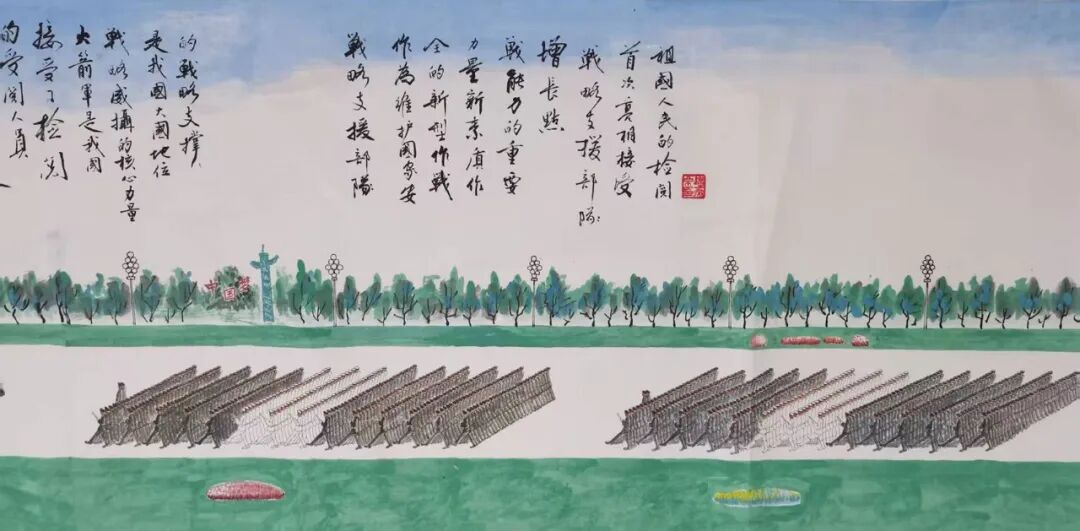 的受阅人员
接受了检阅
火箭軍是我國
戰略威攝的核心力量
是我國大國地位
的戰略支撑、
戰略支援部隊
作為維护國家安
全的新型作戰
力量新素质作
戰能力的重要
增長點
戰略支援部隊
首次亮相接受
祖國人民的检阅
中国梦